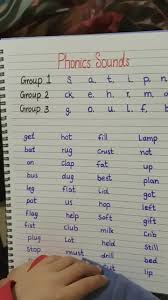 Phonics Sounds
Group 1 s, a, t, i, p, n,
Group 2 ck, e, h, r, m, d
Group 3 g, o, u, l, f, b
get hot fill Lamp
bat rug Crust not
on Clap fat up
bus dug best plan
leg flat lid got
pot us hop left
flag help soft gift
fist club milk Crib
plug Lot held Still
Stop must drill bed
lip